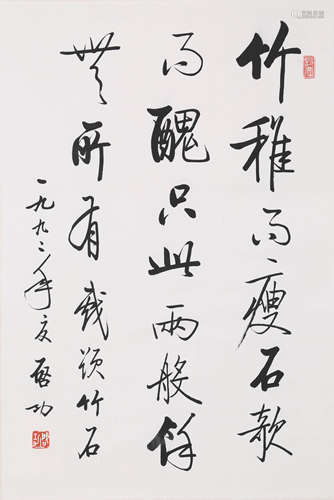 竹稚而瘦石款
而醜只此兩般餘
無所有 竹石
一九九二年夏 啟功